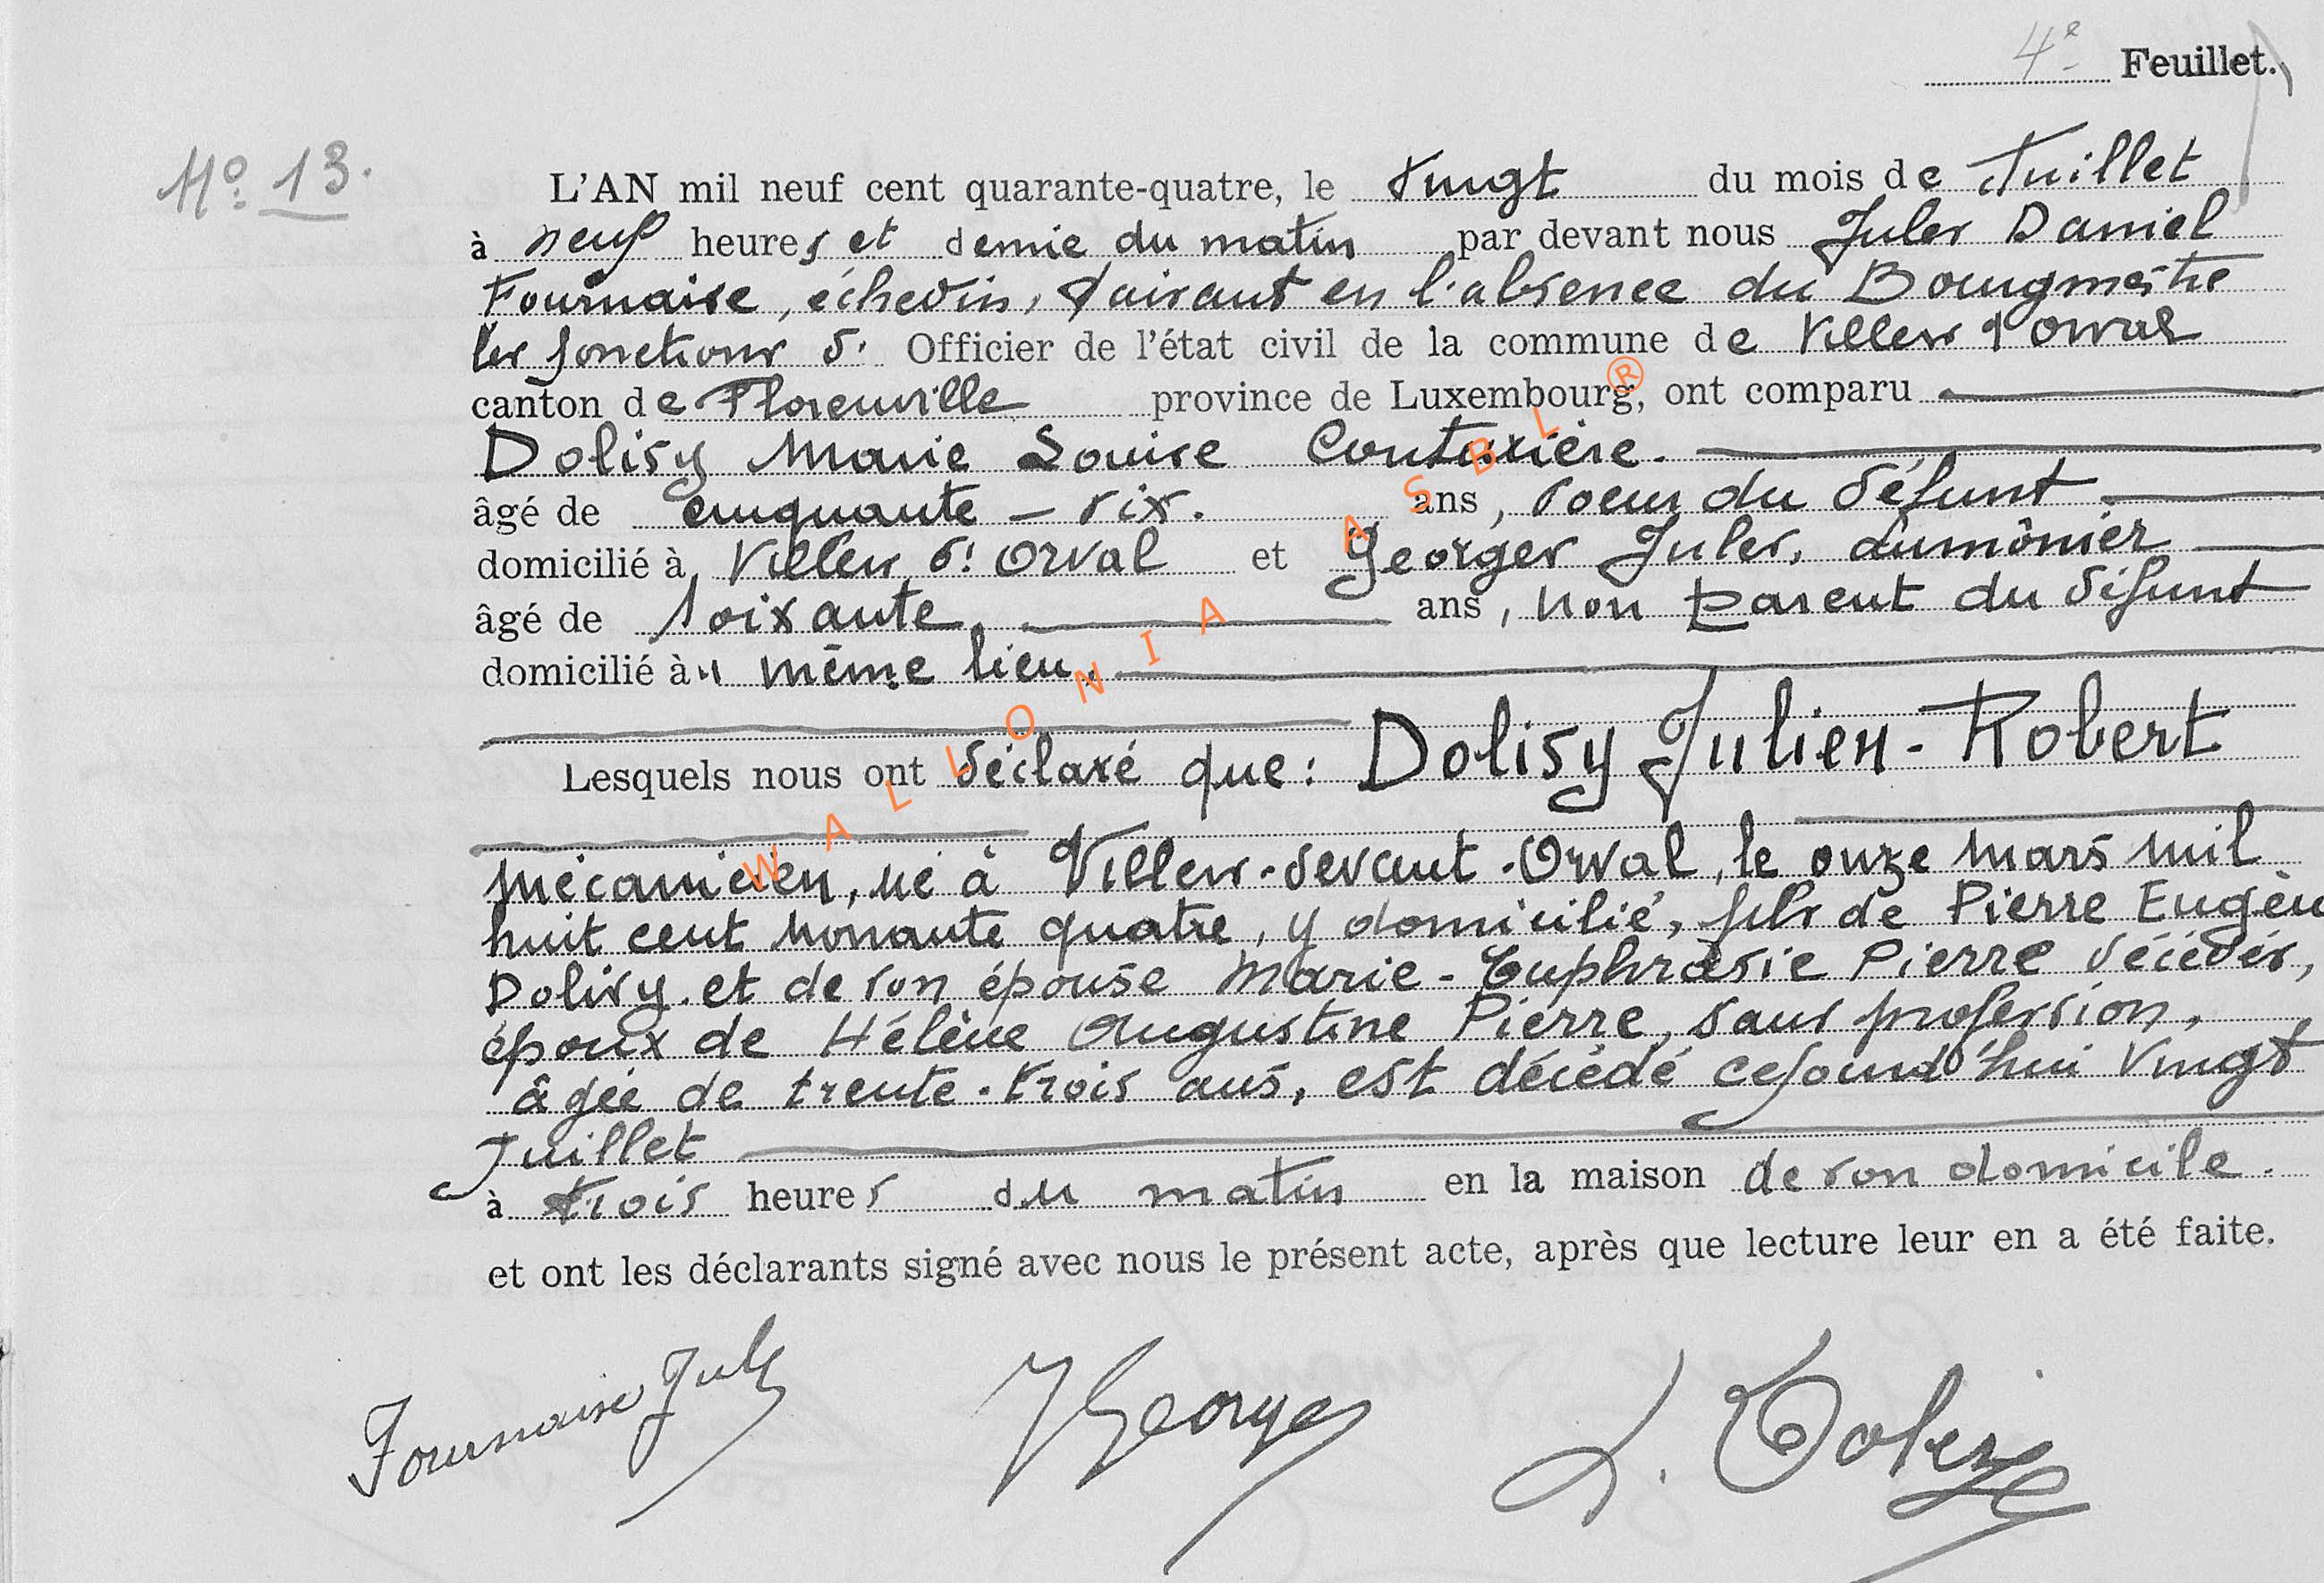 4e Feuillet.
No 13.
L'AN mil neuf cent quarante-quatre, le Vingt du mois de Juillet
à neuf heures et demie du matin par devant nous Jules Daniel
Fournaise, échevin, faisant en l'absence du Bourgmestre
les fonctions d' Officier de l'état civil de la commune de Villers d'orval
canton de Florenville province de Luxembourg, ont comparu
Dolisy Marie Louise Couturière.
âgé de cinquante - six. ans, soeur du défunt
domicilié à Villers d'Orval et Georges Jules, aumônier
âgé de soixante ans, non parent du défunt
domicilié au même lieu.
Lesquels nous ont déclaré que : Dolisy Julien - Robert
mécanicien, né à Villers-devant-Orval, le onze mars mil
huit cent nonante quatre, y domicilié, fils de Pierre Eugèn
Dolisy. et de son épouse Marie - Euphrasie Pierre décédés,
époux de Hélène Augustine Pierre, sans profession,
âgée de trente-trois ans, est décédé cejourd'hui Vingt
Juillet
à trois heures du matin en la maison de son domicile.
et ont les déclarants signé avec nous le présent acte, après que lecture leur en a été faite.
Fournaise Jules JGeorges L. Dolisy
WALLONIA ASBL ®